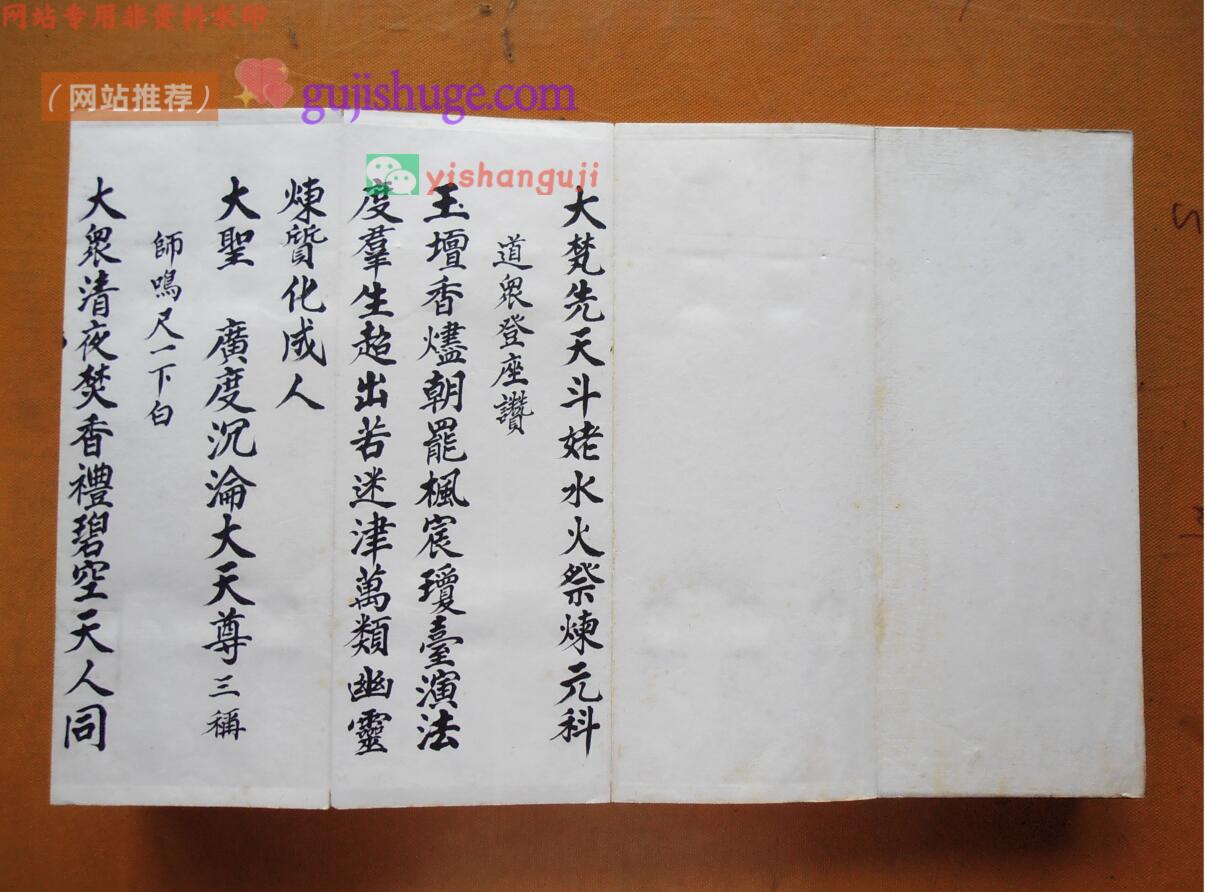 网站专用非资料水印
（网站推荐）
gujishuge.com
yishanguji
大梵先天斗姥水火祭煉元科
道眾登座讚
玉壇香燼朝罷楓宸瓊臺演法
度羣生超出若迷津萬類幽靈
煉質化成人
大聖　廣度沉淪大天尊三稱
師鳴尺一下白
大眾清夜焚香禮碧空天人同